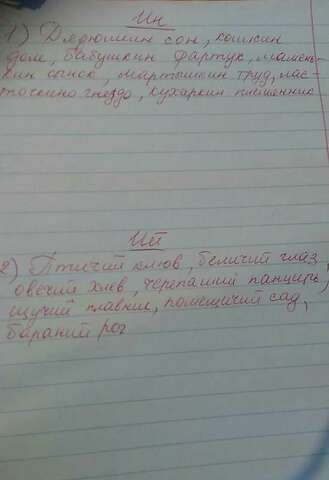 Ин
1) Дядюшин сон, кошкин
дом, бабушкин фартук, мамень-
кин сынок, мартышкин труд, лас-
точкино гнездо, кухаркин племянник
Ий
2) Птичий клюв, беличий глаз,
овечий хлев, черепаший панцирь,
щучий плавник, помещичий сад,
бараний рог